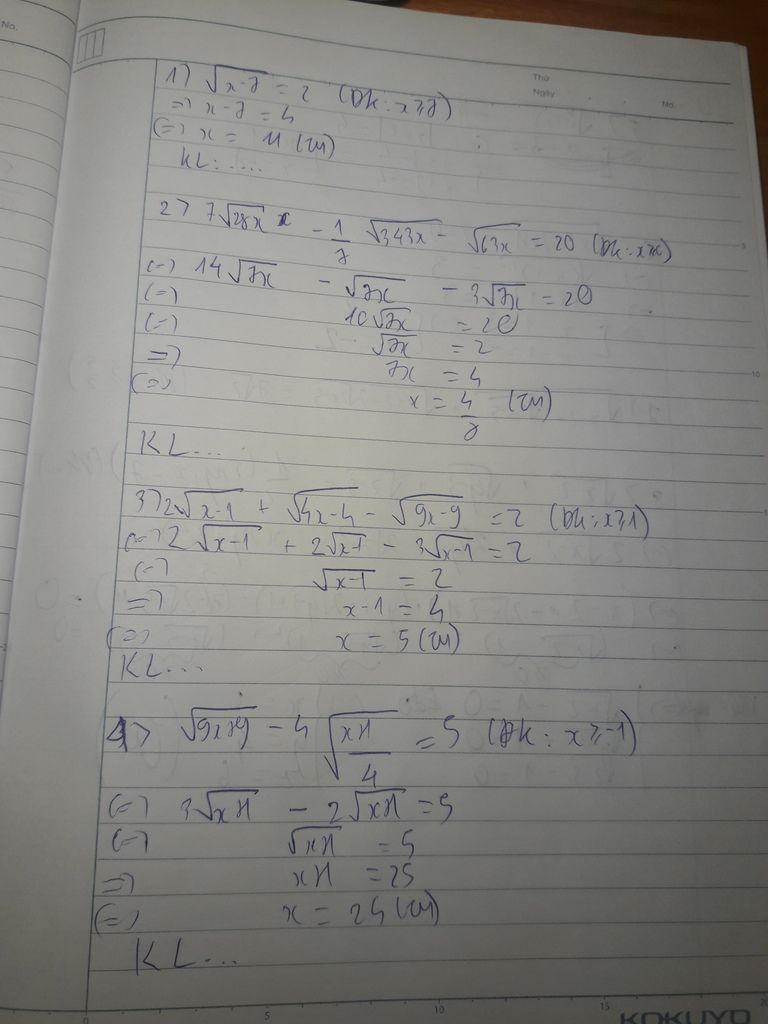 No.
Thứ
Ngày
No.
1) √(x-7) = 2 (Đk: x≥7)
=> x-7 = 4
(=) x = 11 (TM)
KL: ....
2) 7√(28x) - 1/7 √(343x) - √(63x) = 20 (Đk: x≥0)
(=) 14√(7x) - √(7x) - 3√(7x) = 20
(=) 10√(7x) = 20
(=) √(7x) = 2
=> 7x = 4
(=) x = 4/7 (TM)
KL...
3) 2√(x-1) + √(4x-4) - √(9x-9) = 2 (Đk: x≥1)
(=) 2√(x-1) + 2√(x-1) - 3√(x-1) = 2
(=) √(x-1) = 2
=> x-1 = 4
(=) x = 5 (TM)
KL...
4) √(9x+9) - 4√((x+1)/4) = 5 (Đk: x≥-1)
(=) 3√(x+1) - 2√(x+1) = 5
(=) √(x+1) = 5
=> x+1 = 25
(=) x = 24 (TM)
KL...
0 5 10 15 20
KOKUYO